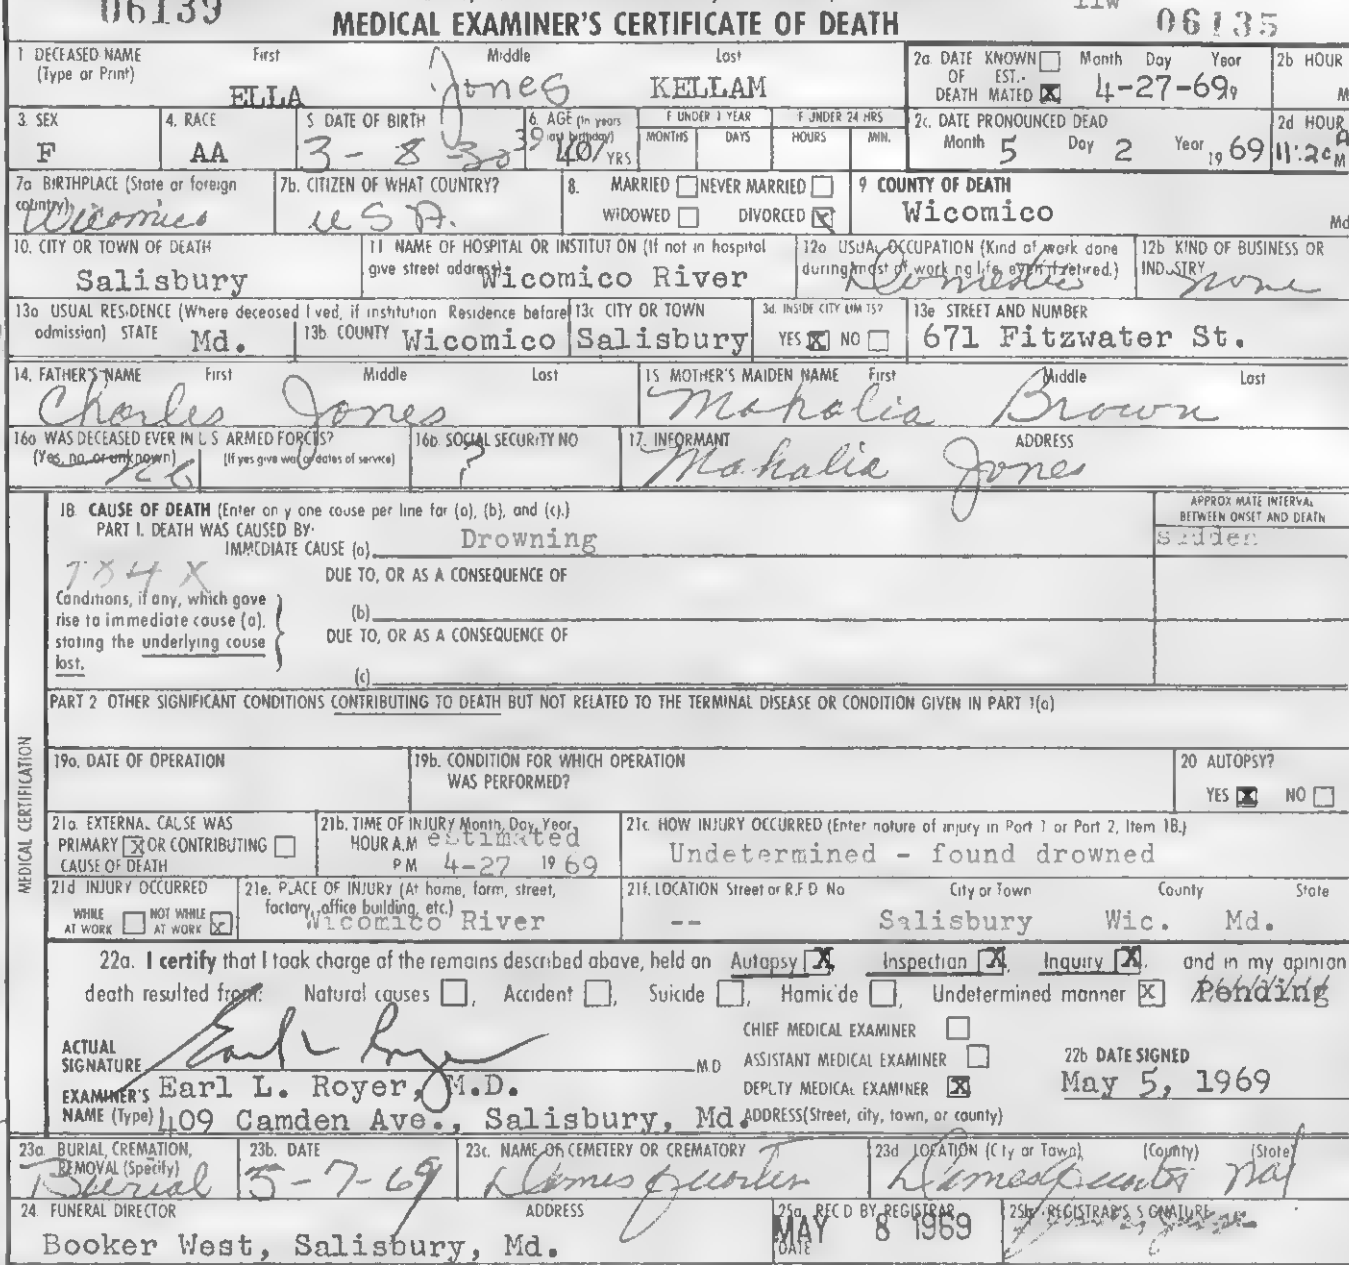 06139
06135
MEDICAL EXAMINER'S CERTIFICATE OF DEATH
1 DECEASED NAME (Type or Print) First Middle Last
ELLA Jones KELLAM
2a. DATE KNOWN OF EST.- DEATH MATED X Month Day Year 4-27-69
2b HOUR M
3. SEX F
4. RACE AA
5 DATE OF BIRTH 3-8-30
6. AGE (In years last birthday) 39 40 YRS
F UNDER 1 YEAR MONTHS DAYS
F UNDER 24 HRS HOURS MIN.
2c. DATE PRONOUNCED DEAD Month 5 Day 2 Year 19 69
2d HOUR 11:20 A M
7a BIRTHPLACE (State or foreign country) Wicomico
7b. CITIZEN OF WHAT COUNTRY? USA.
8. MARRIED NEVER MARRIED WIDOWED DIVORCED X
9 COUNTY OF DEATH Wicomico Md
10. CITY OR TOWN OF DEATH Salisbury
11 NAME OF HOSPITAL OR INSTITUT ON (If not in hospital give street address) Wicomico River
12a USUAL OCCUPATION (Kind of work done during most of work ng life, even if retired.) Domestic
12b KIND OF BUSINESS OR INDUSTRY none
13a USUAL RESIDENCE (Where deceased l ved, if institution Residence before admission) STATE Md.
13b. COUNTY Wicomico
13c CITY OR TOWN Salisbury
3d. INSIDE CITY LIM TS? YES X NO
13e STREET AND NUMBER 671 Fitzwater St.
14. FATHER'S NAME First Middle Last
Charles Jones
15 MOTHER'S MAIDEN NAME First Middle Last
Mahalia Brown
16a WAS DECEASED EVER IN U S ARMED FORCES? (Yes, no, or unknown) (If yes give war or dates of service) No
16b. SOCIAL SECURITY NO ?
17. INFORMANT ADDRESS
Mahalia Jones
MEDICAL CERTIFICATION
18 CAUSE OF DEATH (Enter on y one cause per line for (a), (b), and (c).)
APPROX MATE INTERVAL BETWEEN ONSET AND DEATH
PART I. DEATH WAS CAUSED BY:
IMMEDIATE CAUSE (a) Drowning sudden
DUE TO, OR AS A CONSEQUENCE OF
Conditions, if any, which gave rise to immediate cause (a), stating the underlying cause last.
(b)
DUE TO, OR AS A CONSEQUENCE OF
(c)
PART 2 OTHER SIGNIFICANT CONDITIONS CONTRIBUTING TO DEATH BUT NOT RELATED TO THE TERMINAL DISEASE OR CONDITION GIVEN IN PART 1(a)
19a. DATE OF OPERATION
19b. CONDITION FOR WHICH OPERATION WAS PERFORMED?
20 AUTOPSY? YES X NO
21a. EXTERNAL CAUSE WAS PRIMARY X OR CONTRIBUTING CAUSE OF DEATH
21b. TIME OF INJURY Month, Day, Year HOUR A.M P M estimated 4-27 19 69
21c. HOW INJURY OCCURRED (Enter nature of injury in Part 1 or Part 2, Item 18.)
Undetermined - found drowned
21d INJURY OCCURRED WHILE AT WORK NOT WHILE AT WORK X
21e. PLACE OF INJURY (At home, farm, street, factory, office building, etc.) Wicomico River
21f. LOCATION Street or R.F.D. No City or Town County State
-- Salisbury Wic. Md.
22a. I certify that I took charge of the remains described above, held an Autopsy X, Inspection X, Inquiry X, and in my opinion
death resulted from: Natural causes , Accident , Suicide , Homicide , Undetermined manner X Pending
ACTUAL SIGNATURE Earl L Royer M D
CHIEF MEDICAL EXAMINER
ASSISTANT MEDICAL EXAMINER
DEPUTY MEDICAL EXAMINER X
22b DATE SIGNED May 5, 1969
EXAMINER'S NAME (Type) Earl L. Royer, M.D.
409 Camden Ave., Salisbury, Md. ADDRESS(Street, city, town, or county)
23a. BURIAL, CREMATION, REMOVAL (Specify) Burial
23b. DATE 5-7-69
23c. NAME OF CEMETERY OR CREMATORY Dames Quarter
23d LOCATION (City or Town) (County) (State) Dames Quarter Md
24. FUNERAL DIRECTOR ADDRESS
Booker West, Salisbury, Md.
25a. REC'D BY REGISTRAR DATE MAY 8 1969
25b. REGISTRAR'S SIGNATURE